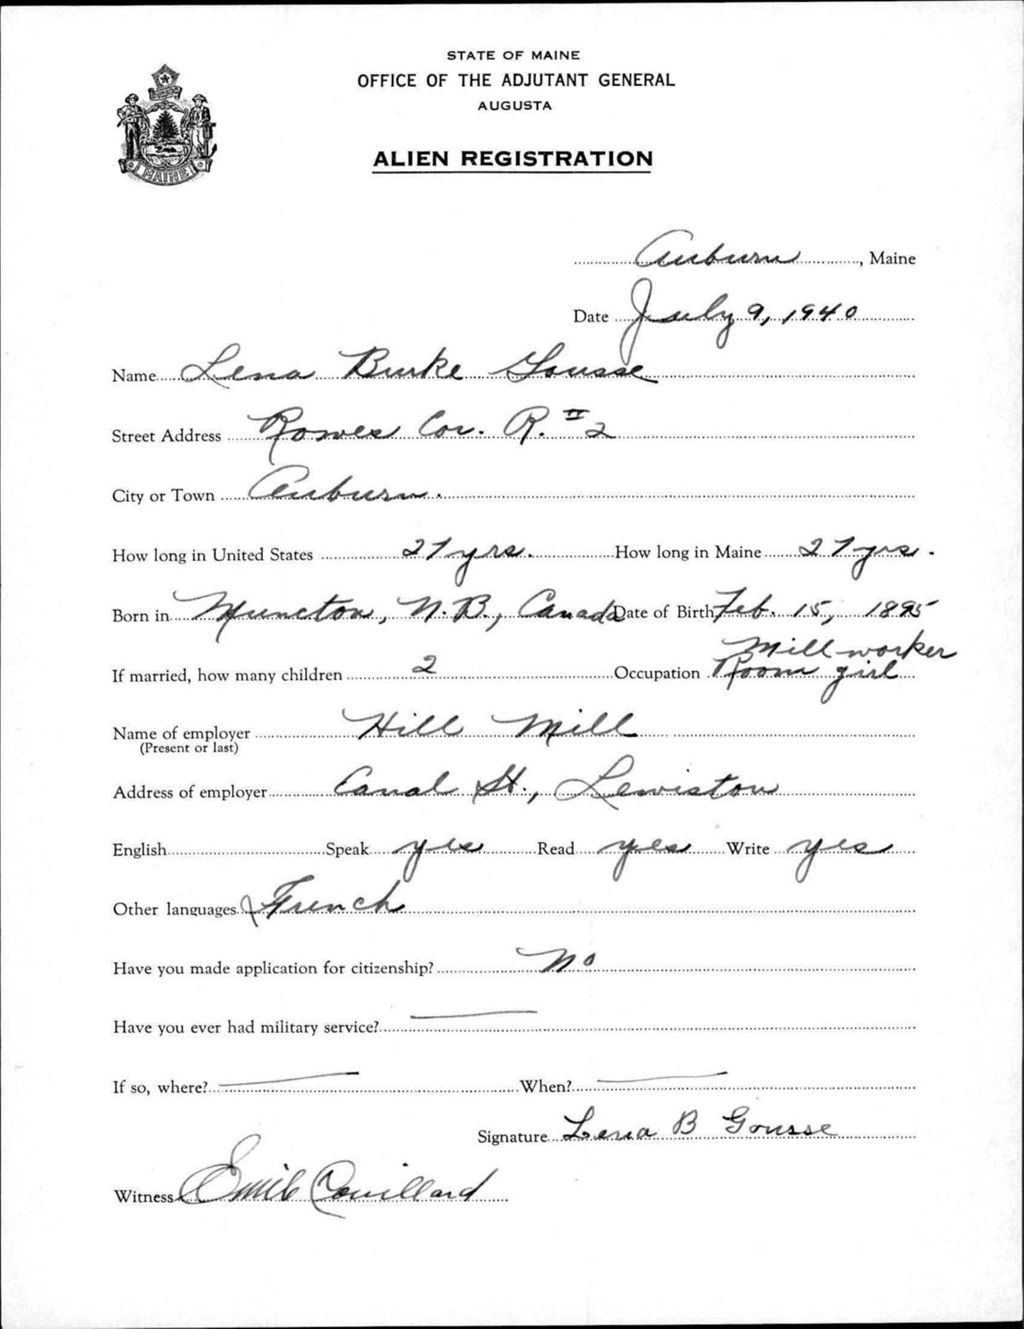 STATE OF MAINE
OFFICE OF THE ADJUTANT GENERAL
AUGUSTA
ALIEN REGISTRATION
MAINE
Auburn, Maine
Date July 9, 1940
Name Lena Burke Gousse
Street Address Rowes Cor. R. #2
City or Town Auburn.
How long in United States 27 yrs. How long in Maine 27 yrs.
Born in Muncton, N.B., Canada Date of Birth Feb. 15, 1895
Mill worker
If married, how many children 2 Occupation Room girl
Name of employer Hill Mill
(Present or last)
Address of employer Canal St., Lewiston
English Speak yes Read yes Write yes
Other languages French
Have you made application for citizenship? No
Have you ever had military service? —
If so, where? — When? —
Signature Lena B Gousse
Witness Emile Couillard